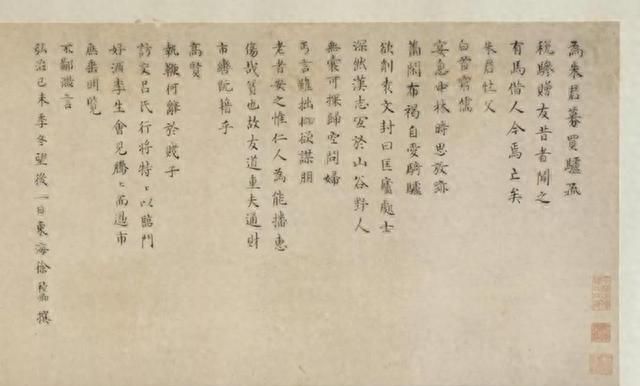 為朱君募買驢疏
稅驂贈友昔者聞之
有馬借人今焉亡矣
朱君性父
白首窮儒
宴息中林時思放跡
蕭閑布褐自愛騎驢
欲削表文封曰匡廬處士
深然漢志宜於山谷野人
無橐可探歸空問婦
丐言雖拙聊欲謀朋
老者安之惟仁人為能播惠
傷哉貧也故友道車夫通財
市繒訊籍乎
高賢
執鞭何離於賤子
訪文呂氏行將特特以臨門
好酒李生會見騰騰而過市
庶垂明覽
不鄙諛言
弘治己未季冬望後一日東海徐禎卿撰